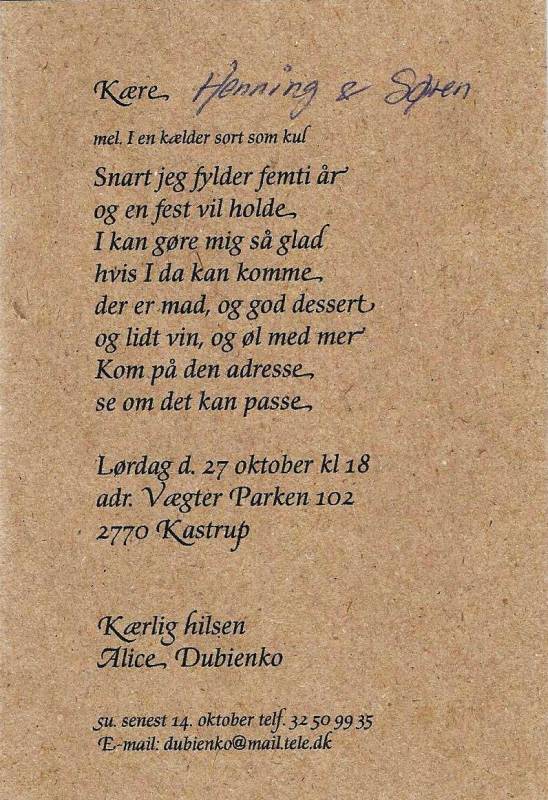 Kære Henning & Søren
mel. I en kælder sort som kul
Snart jeg fylder femti år
og en fest vil holde
I kan gøre mig så glad
hvis I da kan komme
der er mad, og god dessert
og lidt vin, og øl med mer
Kom på den adresse
se om det kan passe
Lørdag d. 27 oktober kl 18
adr. Vægter Parken 102
2770 Kastrup
Kærlig hilsen
Alice Dubienko
su. senest 14. oktober telf. 32 50 99 35
E-mail: dubienko@mail.tele.dk